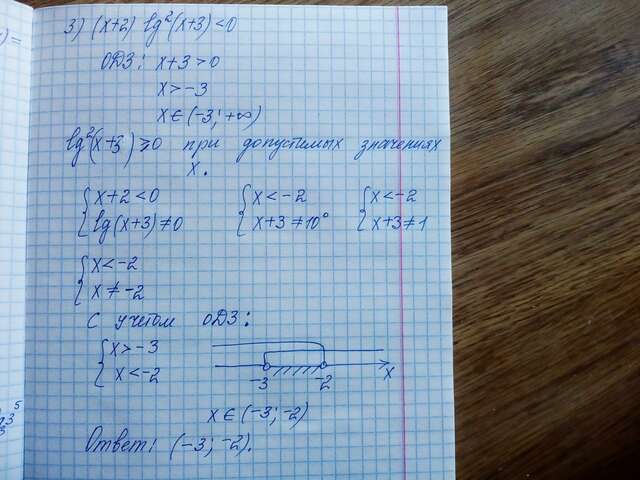 ) =
3) (x+2) lg²(x+3)<0
ОДЗ: x+3>0
x>-3
x∈(-3;+∞)
lg²(x+3)≥0 при допустимых значениях
x.
{ x+2<0 { x<-2 { x<-2
{ lg(x+3)≠0 { x+3≠10° { x+3≠1
{ x<-2
{ x≠-2
С учетом ОДЗ:
{ x>-3
{ x<-2
-3 -2 x
x∈(-3;-2)
Ответ: (-3;-2).